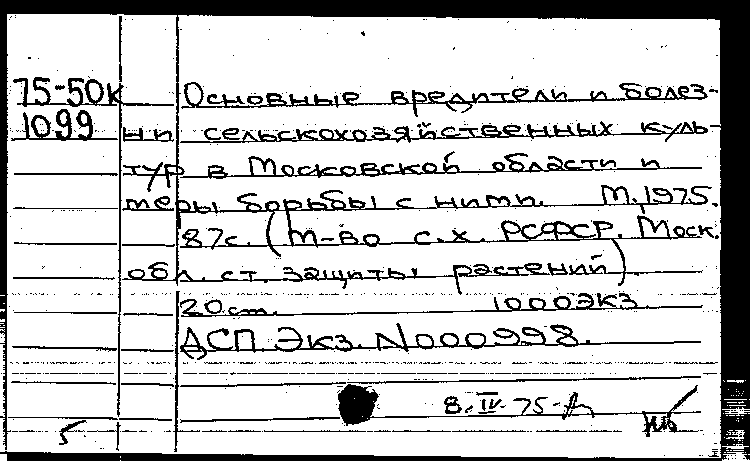 75-50к Основные вредители и болез-
1099 ни сельскохозяйственных куль-
тур в Московской области и
меры борьбы с ними. М. 1975.
87с. (М-во с.х. РСФСР. Моск.
обл. ст. защиты растений).
20см. 1000экз.
ДСП. Экз. N000998.
8.IV.75-
5